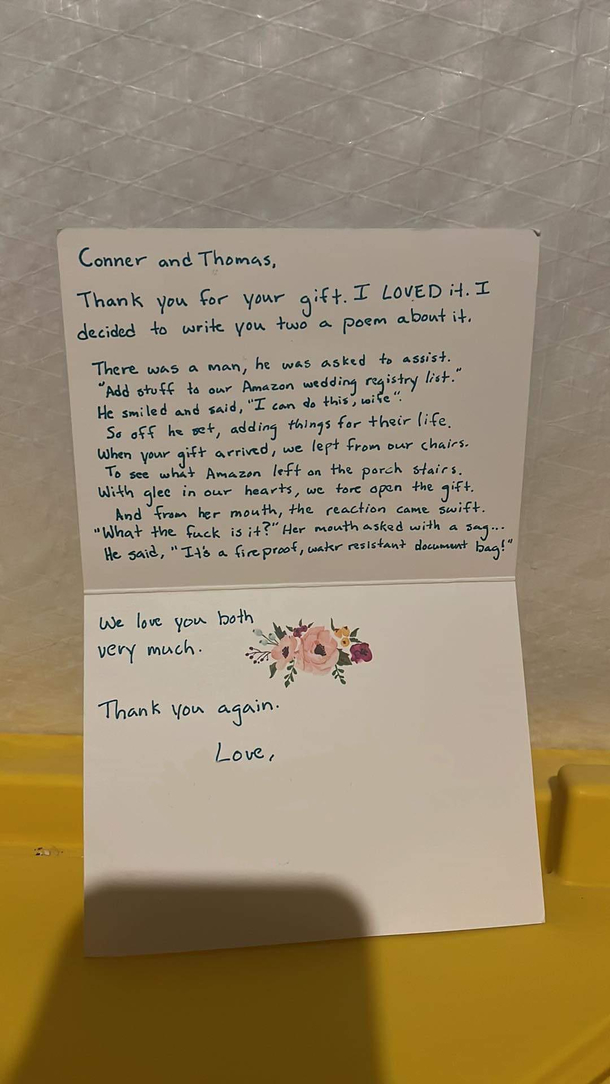 Conner and Thomas,
Thank you for your gift. I LOVED it. I
decided to write you two a poem about it.
There was a man, he was asked to assist.
"Add stuff to our Amazon wedding registry list."
He smiled and said, "I can do this, wife".
So off he set, adding things for their life.
When your gift arrived, we left from our chairs.
To see what Amazon left on the porch stairs.
With glee in our hearts, we tore open the gift.
And from her mouth, the reaction came swift.
"What the fuck is it?" Her mouth asked with a sag...
He said, "It's a fireproof, water resistant document bag!"
We love you both
very much.
Thank you again.
Love,